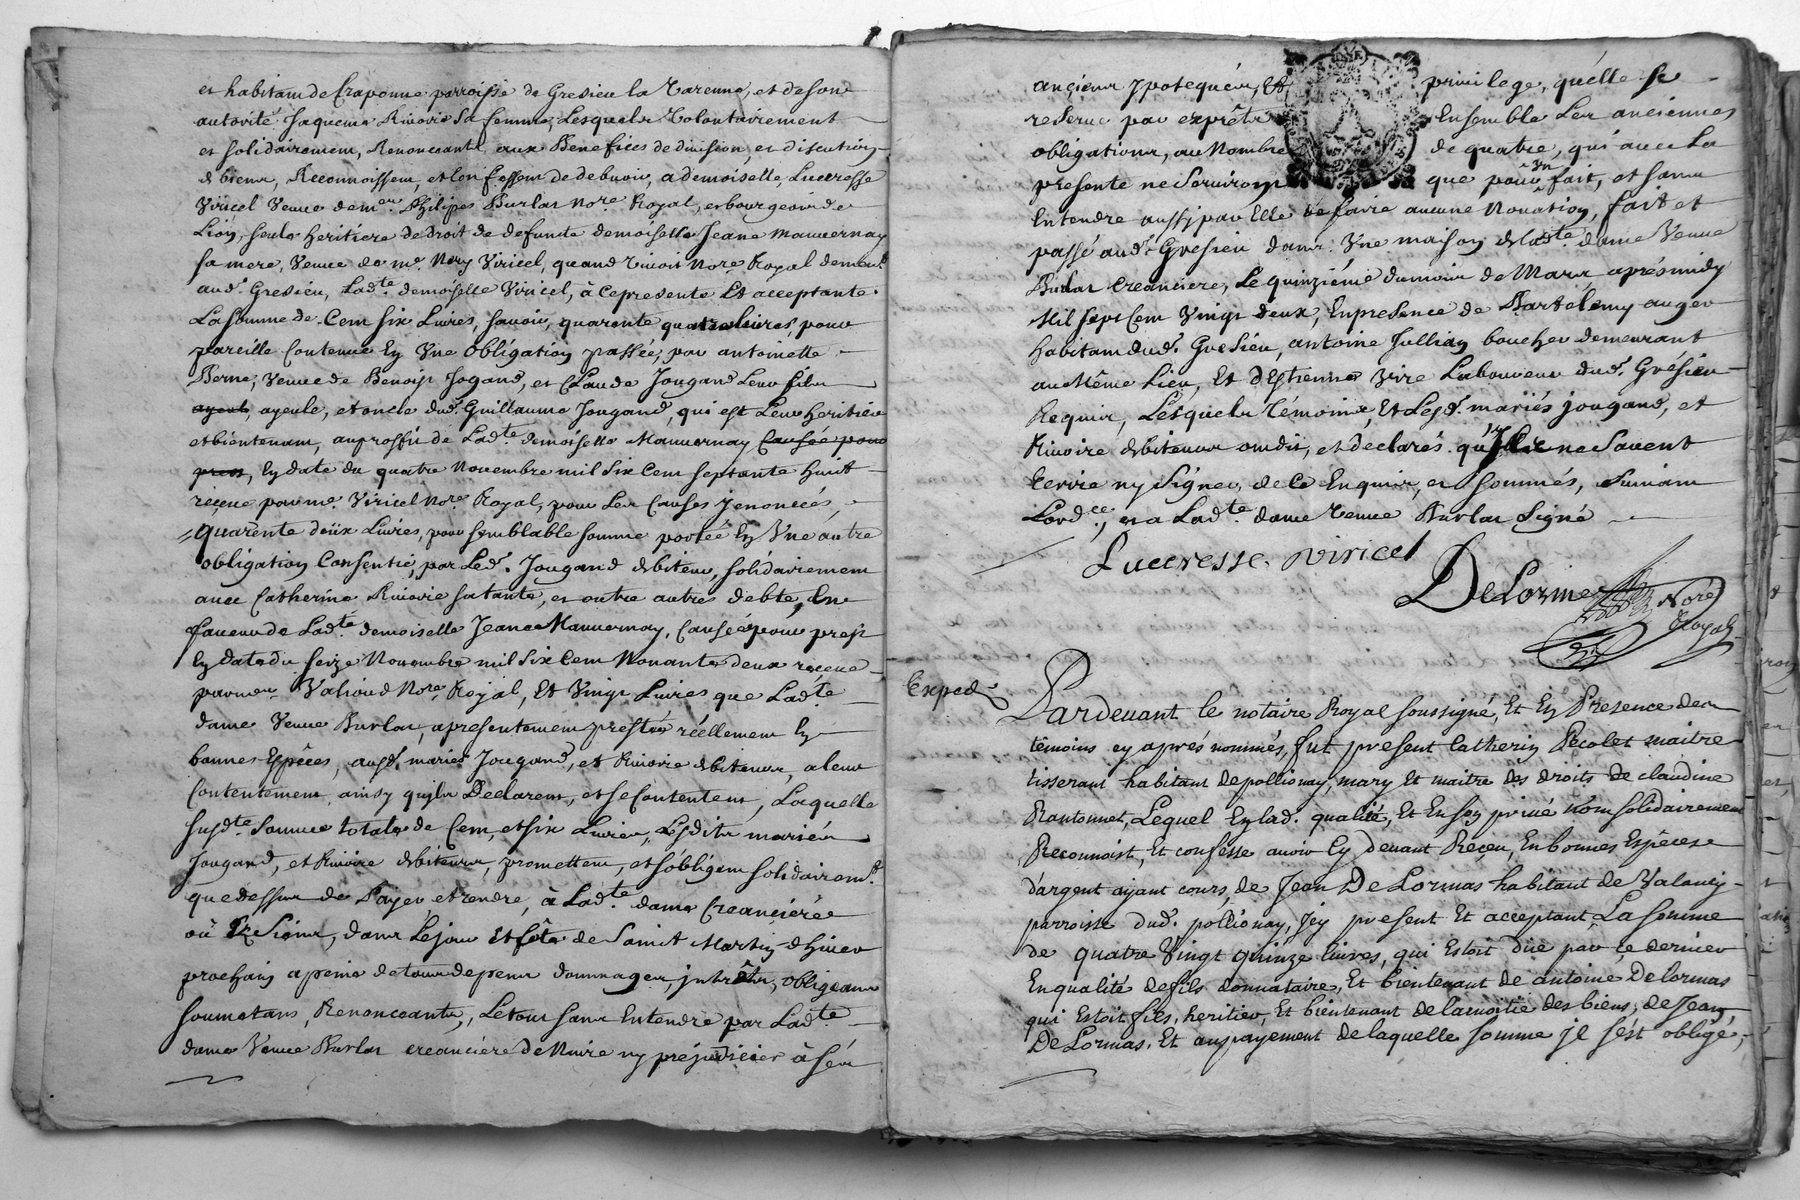 et habitant de Craponne parroisse de Gresieu la Varenne, et de son
autorité Jaqueme Rivoire sa femme, Lesquels Volontairement
et solidairement, Renonceants aux Benefices de division, et discution
de biens, Reconnoissent, et Confessent de debvoir, a demoiselle, Lucresse
Viricel Veuve de me. Philipes Burlat Nore. Royal, et bourgeois de
Lion, seule heritiere de droit de defunte demoiselle Jeane Mauvernay
sa mere, Veuve de me. Nery Viricel, quand vivoit Nore. Royal demeurt.
aud. Gresieu, Ladte. demoiselle Viricel, à Ce presente Et acceptante.
La somme de Cent six Livres, savoir, quarente quatre livres, pour
pareille Contenue En Vne obligation passée, par antoinette
Berne, Veuve de Benoist Jogand, et Claude Jougand Leur fils
ayeule, et oncle dud. Guillaume Jougand, qui est Leur heritier
et bientenant, au proffit de Ladte. demoiselle Mauvernay Causée pour
prest, En date du quatre Novembre mil six Cent septante huit
reçeue par me. Viricel Nore. Royal, pour Les Causes y enoncés,
quarente deux Livres, pour semblable somme portée En Vne autre
obligation Consentie, par Led. Jougand debiteur, solidairement
avec Catherine Rivoire sa tante, et outre autre debte, En
faveur de Ladte. demoiselle Jeane Mauvernay, Causée pour prest
En date du seize Novembre mil six Cent Nonante deux reçeue
par me. Valioud Nore. Royal, Et Vingt Livres que Ladte.
dame Veuve Burlat, a presentement prestée réellement En
bonnes Espêces, ausd. mariés Jougand, et Rivoire debiteurs, a leur
Contentement ainsy qu'ils Declarent, et se Contentent, Laquelle
susdte. Somme totale de Cent, et six Livres, Lesdits mariés
Jougand, et Rivoire debiteurs, promettent, et s'obligent solidairemt.
que dessus de Payer et rendre, à Ladte. dame Creanciére
ou Ez Siens, dans Le jour Et féte de Saint Martin d'hiver
prochain a peine de tous depens dommages, intrêts, obligeants
soumetans, Renonceants, Le tout sans Entendre par Ladte.
dame Veuve Burlat creanciere de Nuire ny prejudicier à ses
anciens ypotequés, Et privilege, qu'elle se
reserve par exprês Ensemble Les anciennes
obligations, au Nombre de quatre, qui avec La
presente ne Serviront que pour vn fait, et sans
Entendre aussy par Elle de faire aucune Novation, fait et
passé aud. Gresieu dans Vne maison de Ladte. dame Veuve
Burlat Creanciere, Le quinziéme du mois de Mars aprés midy
Mil sept Cent Vingt deux, En presence de Bartélemy auger
habitant dud. Gresieu, antoine Jullian boucher demeurant
au Même Lieu, Et d'Estienne Vire Laboureur dud. Grésieu
Requis, Lesquels Témoins, Et Lesd. mariés jougand, et
Rivoire debiteurs ont dit, et declarés qu'ils ne Savent
Ecrire ny Signer, de Ce Enquis, et sommés, Suivant
Lordce, et a Ladte. dame Veuve Burlat Signé
Lucresse. viricel
DeLorme Nore Royal
Exped.
Pardevant le notaire Royal soussigné, Et En Presence des
témoins cy aprés nommés, fut present Catherin Pecolet maitre
tisserant habitant de pollionay, mary Et maitre des droits de claudine
Rantonnet, Lequel En lad. qualité, Et En son privé nom solidairement
Reconnoist, Et confesse avoir Cy devant Reçeu, En bonnes Espêces
d'argent ayant cours, de Jean DeLormas habitant de Valency
parroisse dud. pollionay, Icy present Et acceptant, La somme
de quatre Vingt quinze livres, qui Estoit düe par ce dernier
En qualité de fils donnataire, Et bientenant de antoine Delormas
qui Estoit fils, heritier, Et bientenant de la moitie des biens, de Jean
DeLormas, Et au payement de laquelle somme il s'est obligé,